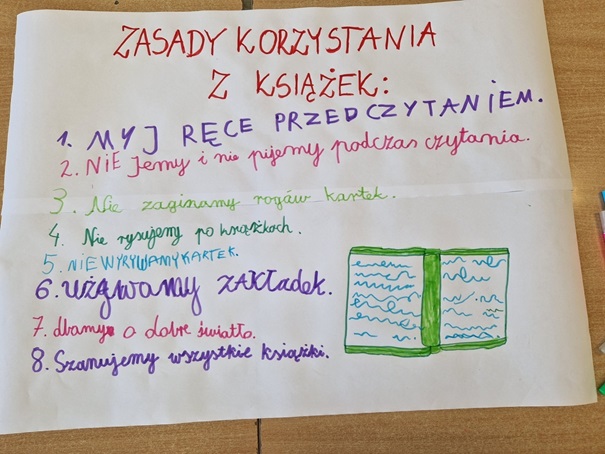 ZASADY KORZYSTANIA
Z KSIĄŻEK:
1. MYJ RĘCE PRZED CZYTANIEM.
2. NIE Jemy i nie pijemy podczas czytania.
3. Nie zaginamy rogów kartek.
4. Nie rysujemy po książkach.
5. NIE WYRYWAMY KARTEK.
6. UŻYWAMY ZAKŁAdek.
7. dbamy o dobre światło.
8. Szanujemy wszystkie książki.